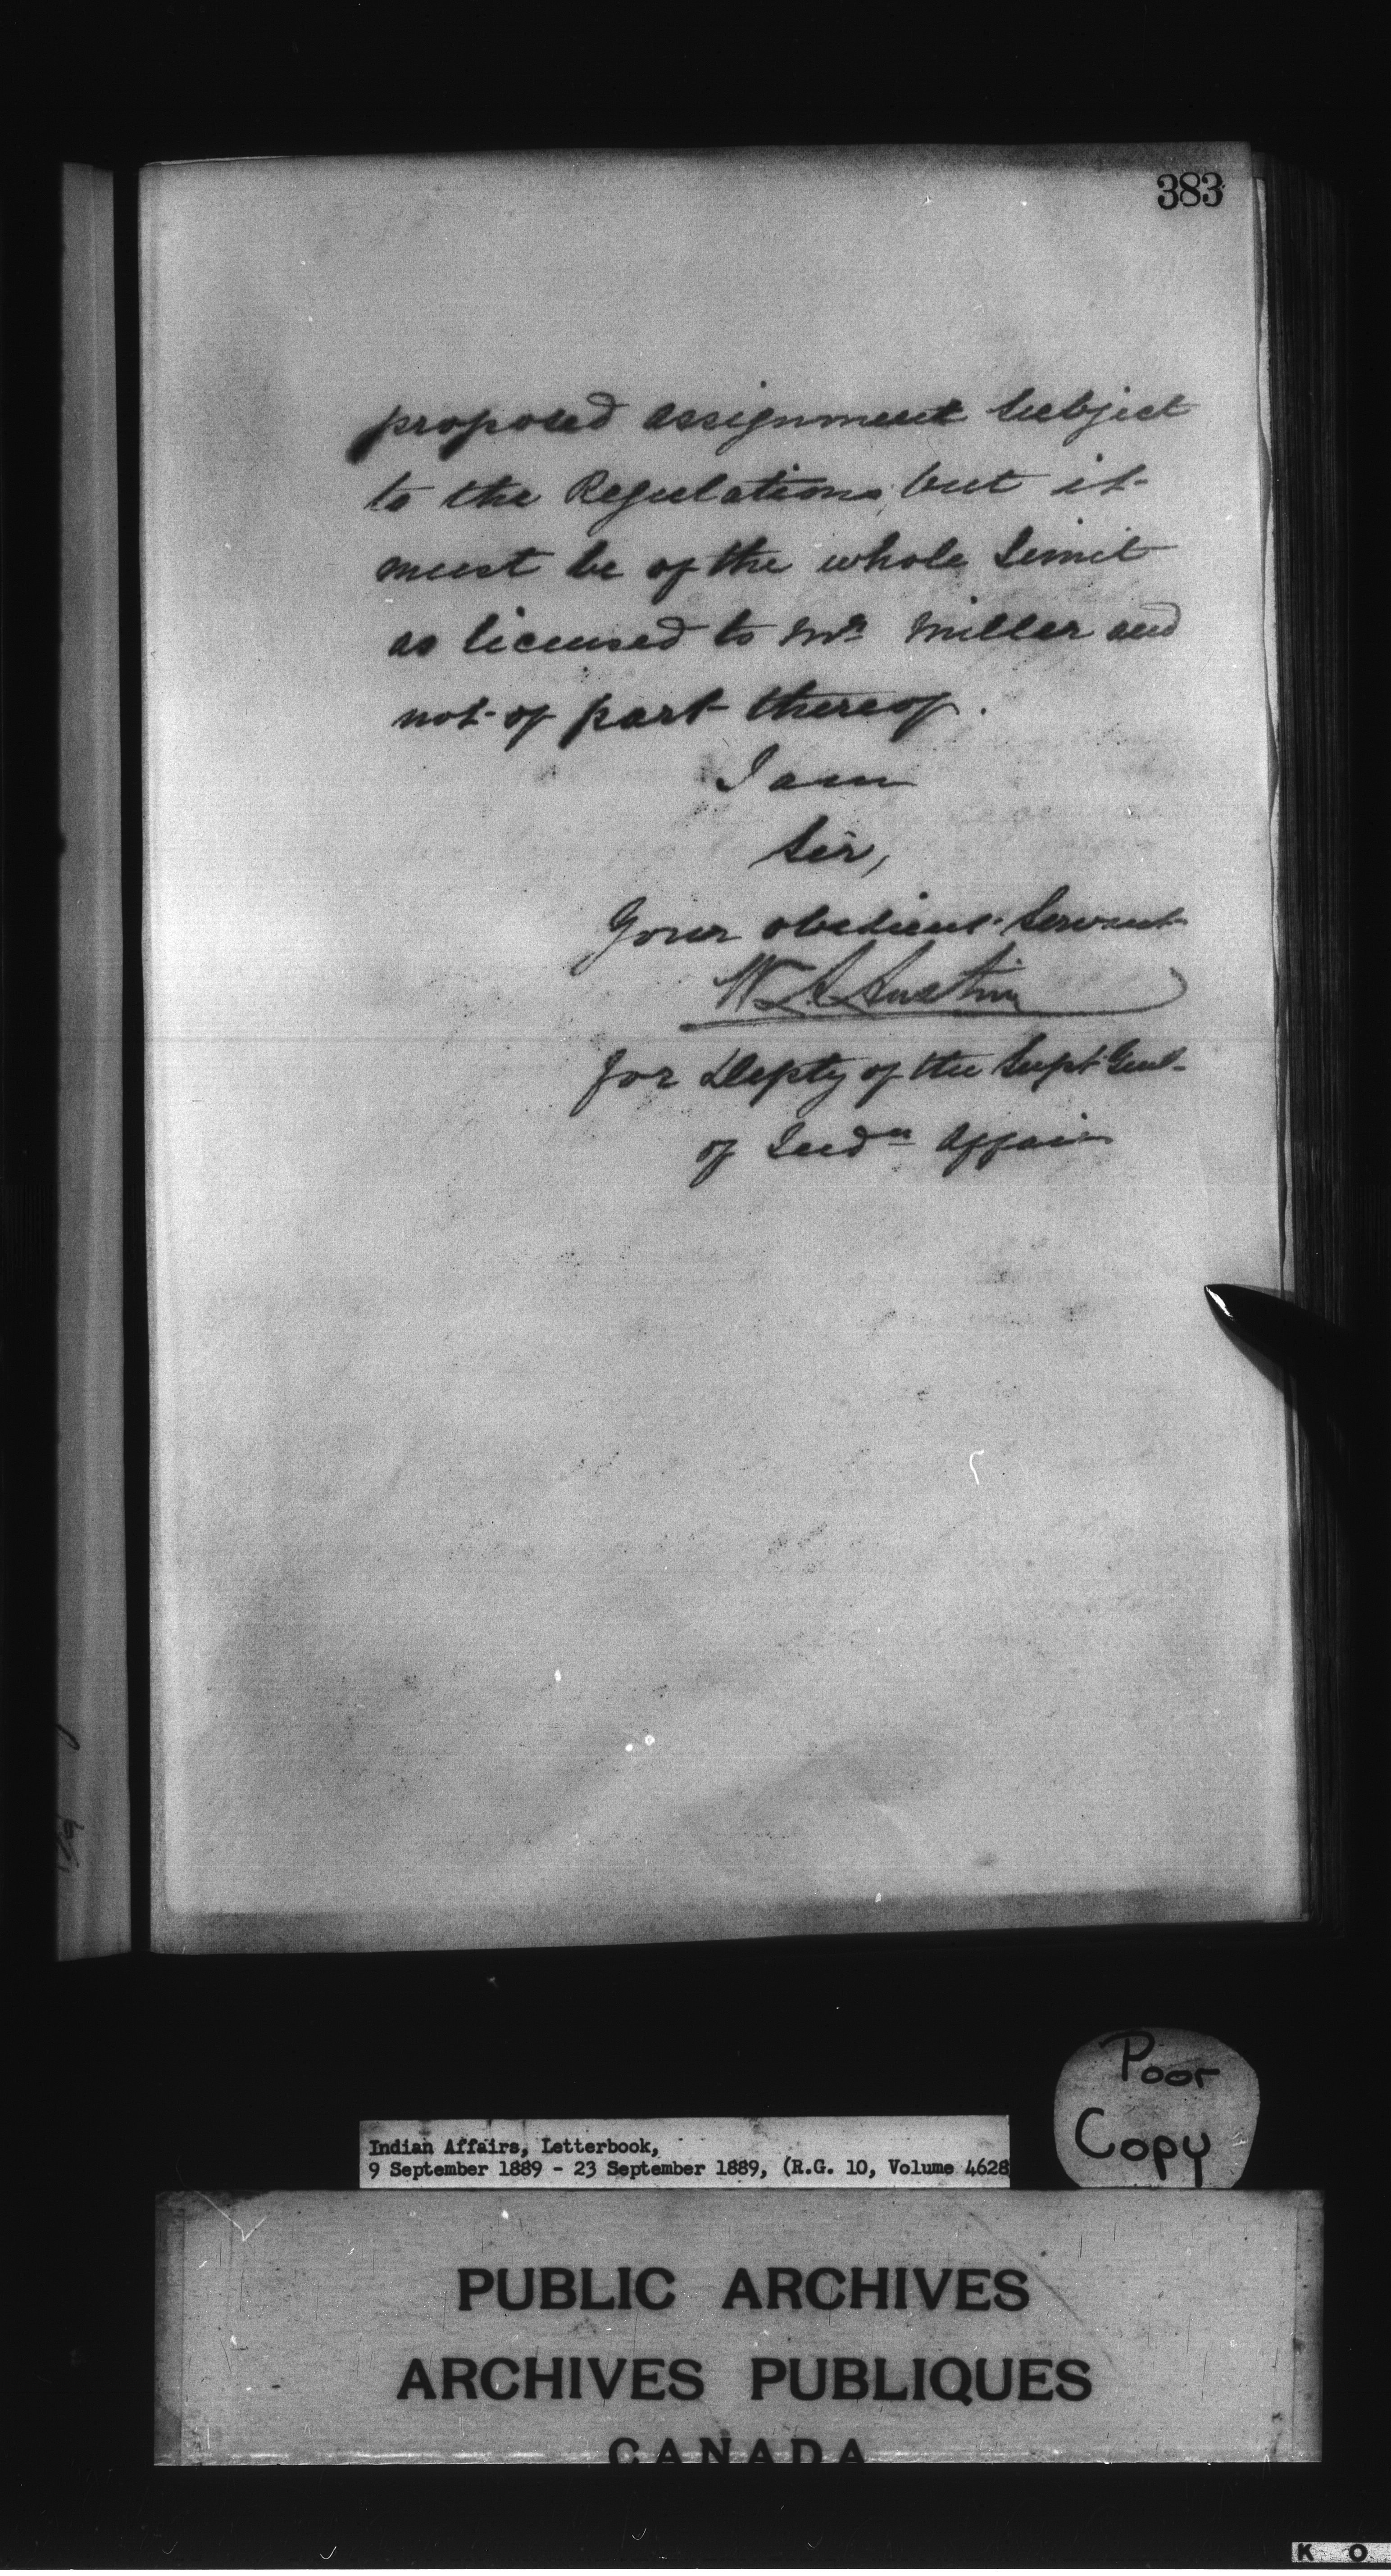 383
proposed assignment subject
to the Regulations, but it
must be of the whole limit
as licensed to Mr. Miller and
not of part thereof.
I am
Sir,
Your obedient Servant
W. A. Austin
for Depty of the Supt Genl
of Indn Affairs
Poor
Copy
Indian Affairs, Letterbook,
9 September 1889 - 23 September 1889, (R.G. 10, Volume 4628
PUBLIC ARCHIVES
ARCHIVES PUBLIQUES
CANADA
K O